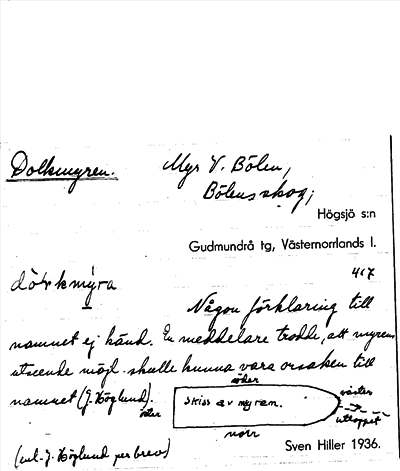 Dolkmyren. Myr V. Bölen,
Bölens skog;
Högsjö s:n
Gudmundrå tg, Västernorrlands l.
417
Någon förklaring till
namnet ej känd. En meddelare trodde, att myrens
utseende möjl. skulle kunna vara orsaken till
namnet (J. Höglund).
söder
skiss av myren.
öster
väster
utloppet
norr
(enl. J. Höglund per brev)
Sven Hiller 1936.